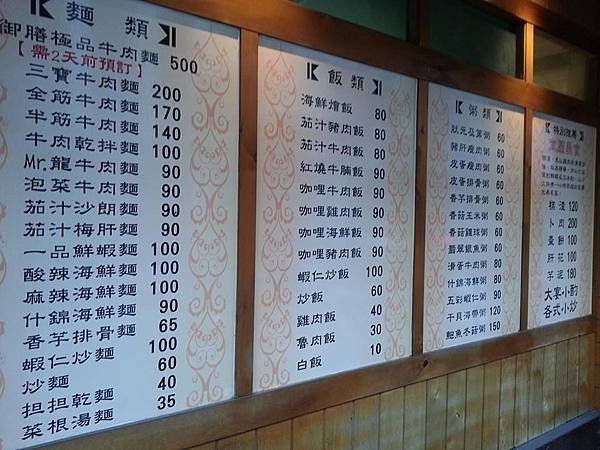 【麵 類】
御膳極品牛肉麵 500
【需2天前預訂】
三寶牛肉麵 200
全筋牛肉麵 170
半筋牛肉麵 140
牛肉乾拌麵 100
Mr.龍牛肉麵 90
泡菜牛肉麵 90
茄汁沙朗麵 90
茄汁梅肝麵 90
一品鮮蝦麵 100
酸辣海鮮麵 100
麻辣海鮮麵 100
什錦海鮮麵 90
香芋排骨麵 65
蝦仁炒麵 100
炒麵 60
担担乾麵 40
菜根湯麵 35
【飯 類】
海鮮燴飯 80
茄汁豬肉飯 80
茄汁牛肉飯 80
紅燒牛腩飯 90
咖哩牛肉飯 90
咖哩雞肉飯 90
咖哩海鮮飯 90
咖哩豬肉飯 90
蝦仁炒飯 100
炒飯 60
雞肉飯 40
魯肉飯 30
白飯 10
【粥 類】
狀元及第粥 60
豬肝瘦肉粥 60
皮蛋瘦肉粥 60
皮蛋排骨粥 60
香芋排骨粥 60
香菇玉米粥 60
香菇雞球粥 60
翡翠銀魚粥 60
滑蛋牛肉粥 80
什錦海鮮粥 80
五彩蝦仁粥 90
干貝海帶粥 120
鮑魚冬菇粥 150
【特別推薦】
120
卜肉 200
100
肝花 100
180
大宴小酌
各式小炒